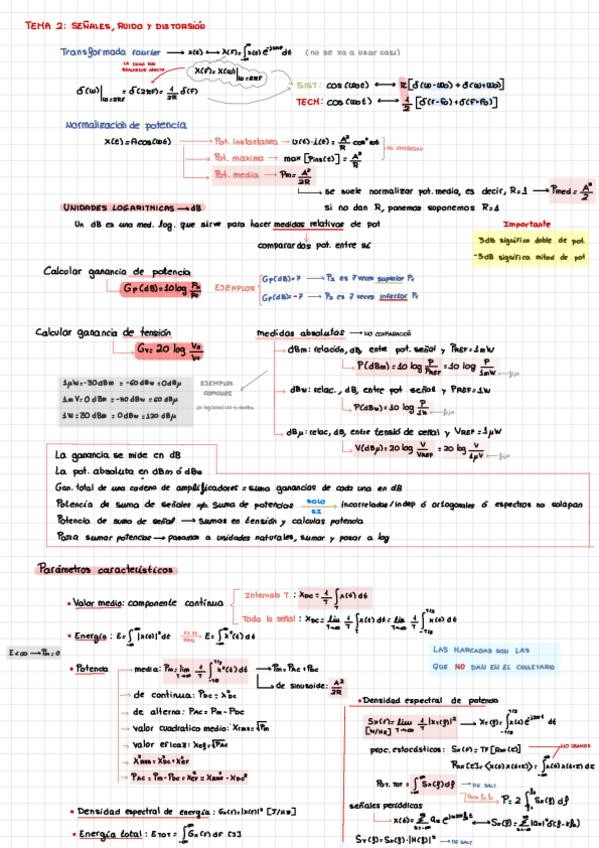 TEMA 2: SEÑALES, RUIDO Y DISTORSIÓN
Transformada fourier → x(t) ↔ X(f)=∫x(t)e^-j2πft dt (no se va a usar casi)
X(f)=X(ω)|ω=2πf
δ(ω)|ω=2πf = δ(2πf)= 1/2π δ(f)
SIST: cos(ω0t) ↔ π[δ(ω-ω0)+δ(ω+ω0)]
TECH: cos(ω0t) ↔ 1/2[δ(f-f0)+δ(f+f0)]
Normalización de potencia
x(t)=Acos(ωt)
Pot. instantanea → v(t)·i(t)= A²/R cos²ωt
Pot. maxima → max[Pins(t)] = A²/R
NO INTERESAN
Pot. media → Pm= A²/2R
se suele normalizar pot. media, es decir, R=1 → Pmed= A²/2
si no dan R, ponemos suponemos R=1
UNIDADES LOGARITMICAS → dB
Un dB es una med. log. que sirve para hacer medidas relativas de pot
comparar dos pot. entre sí
Importante
3dB significa doble de pot.
-3dB significa mitad de pot
Calcular ganancia de potencia
Gp(dB)=10log P2/P1
EJEMPLOS
Gp(dB)=7 → P2 es 7 veces superior P1
Gp(dB)=-7 → P2 es 7 veces inferior P1
Calcular ganancia de tensión
Gv= 20 log V2/V1
medidas absolutas → NO COMPARACIÓN
dBm: relación, dB, entre pot. señal y PREF=1mW
P(dBm)=10 log P/PREF =10 log P/1mW → fijo
dBw: relac., dB, entre pot señal y PREF=1W
P(dBw)=10 log P/1W → fijo
dBμ: relac, dB, entre tensió de señal y VREF=1μW
V(dBμ)=20 log V/VREF = 20 log V/1μV → fijo
1μW=-30dBm = -60dBw = 0dBμ
1mV: 0 dBm = -30dBw = 60dBμ
1W= 30dBm = 0dBw = 120 dBμ
EJEMPLOS COMUNES
La ganancia se mide en dB
La pot. absoluta en dBm ó dBw
Gan. total de una cadena de amplificadores = suma ganancias de cada una en dB
Potencia de suma de señales ≠ suma de potencias SOLO SI incorrelados/indep ó ortogonales ó espectros no solapan
Potencia de suma de señal → sumas en tensión y calculas potencia
Para sumar potencias → pasamos a unidades naturales, sumar y pasar a log
Parámetros característicos
• Valor medio: componente continua
Intervalo T : XDC = 1/T ∫T x(t) dt
Toda la señal: XDC= lim T→∞ 1/T ∫T x(t) dt = lim T→∞ 1/T ∫-T/2 T/2 x(t) dt
• Energía: E=∫|x(t)|²dt → E=∫x²(t) dt
E<∞ → Pm=0
LAS MARCADAS SON LAS
QUE NO DAN EN EL CHULETARIO
• Potencia
media: Pm= lim T→∞ 1/T ∫-T/2 T/2 x²(t) dt → Pm= PAC + PDC
de sinusoide: A²/2R
de continua: PDC= X²DC
de alterna: PAC= Pm-PDC
valor cuadratico medio: XRMS=√Pm
valor eficaz: Xef=√PAC
X²RMS = X²DC+X²ef
PAC= Pm-PDC= X²ef = X²RMS - X²DC
• Densidad espectral de energía: Gx(f)=|X(f)|² [J/Hz]
• Energía total: ETOT = ∫Gx(f) df [J]
• Densidad espectral de potencia
Sx(f)= lim T→∞ 1/T |XT(f)|² → XT(f)=∫-T/2 T/2 x(t) e^-j2πft dt
[W/Hz]
proc. estocásticos: Sx(f) = TF[Rxx(τ)]
NO USADOS
Pot. TOT = ∫Sx(f) df → DE SALT
P= 2∫Sx(f) df
señales periódicas
Sy(f)= Sx(f)·|H(f)|² → DE SALT